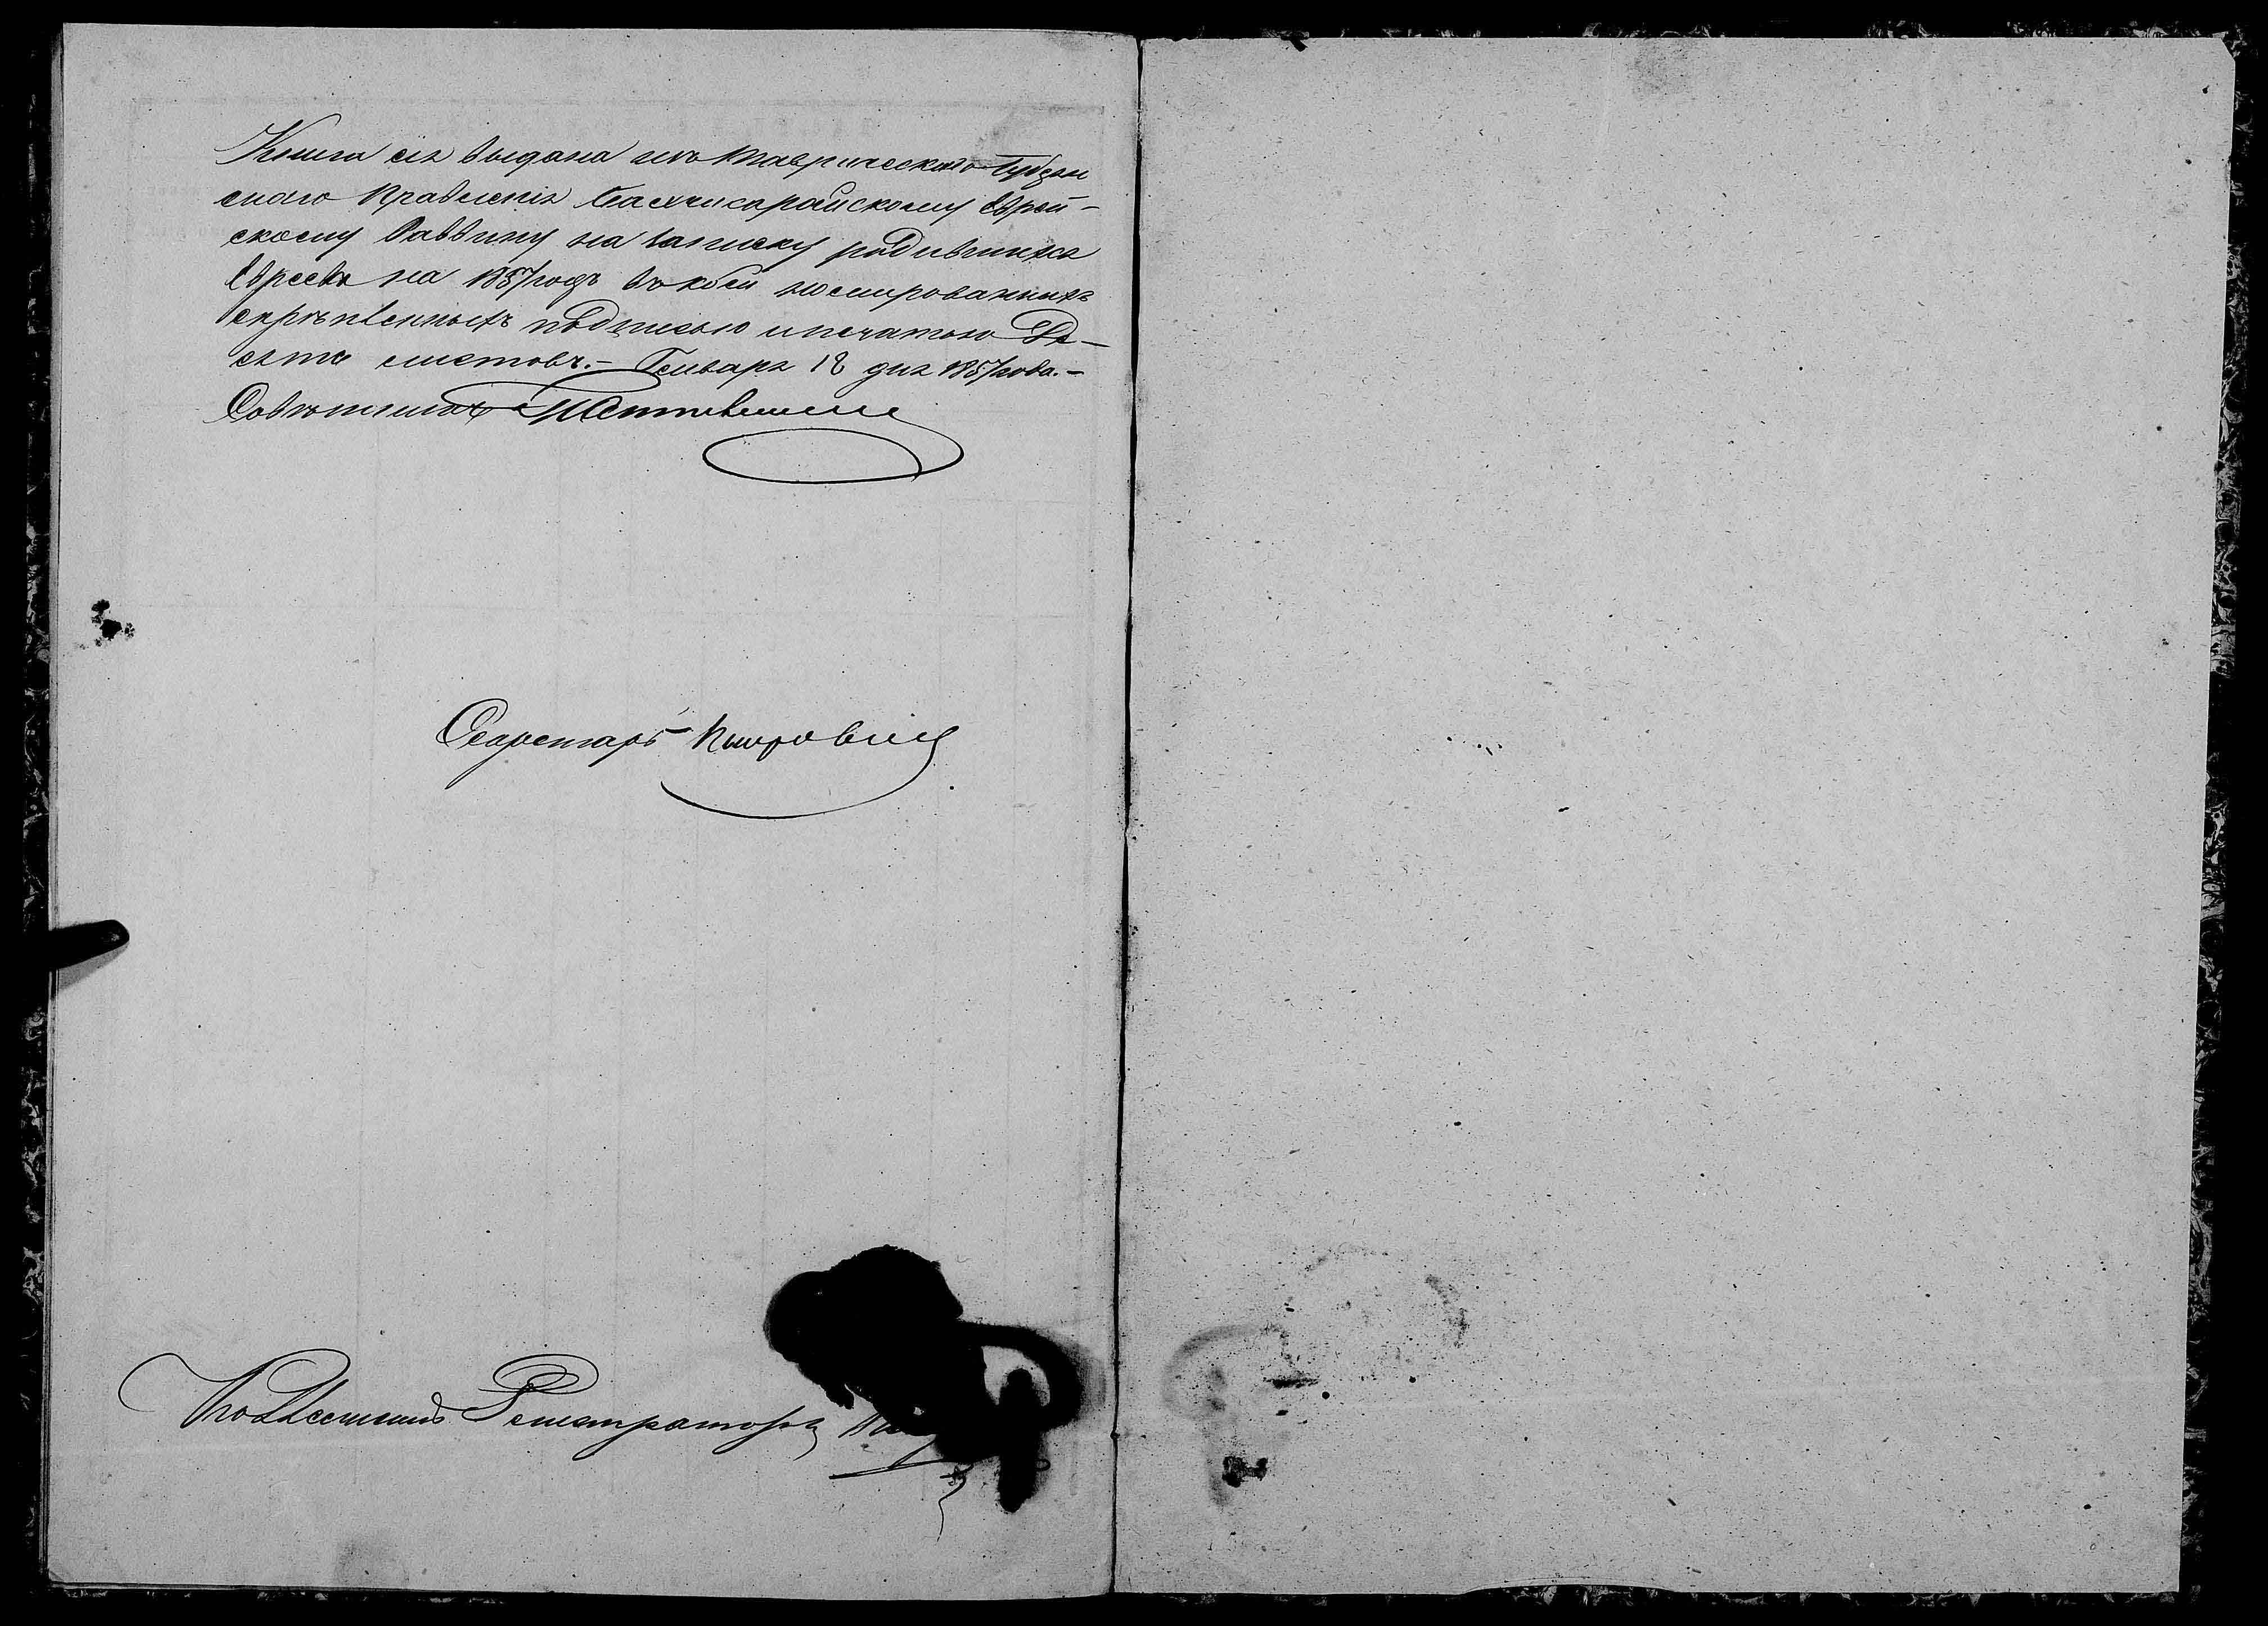 Книга сія выдана изъ Таврическаго Губерн
скаго Правленія Бахчисарайскому Еврей-
скому Раввину на записку родившихся
Евреевъ на 1857 годъ въ коей нумерованныхъ
скрѣпленныхъ подписью и печатью Де-
сять листовъ.- Генваря 18 дня 1857 года.-
Совѣтникъ
Секретарь
Коллежскій Регистраторъ